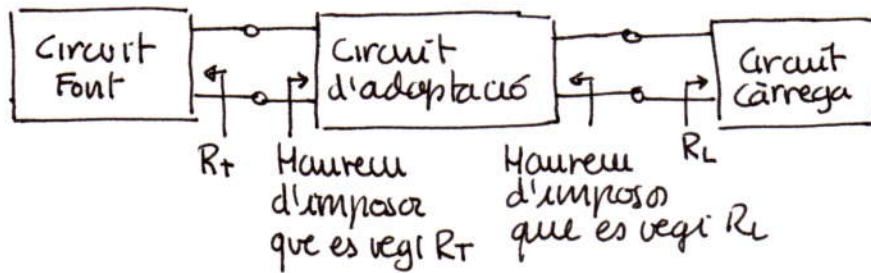 Circuit
Font
Circuit
d'adaptació
Circuit
Càrrega
RT
Haurem
d'imposar
que es vegi RT
Haurem
d'imposar
que es vegi RL
RL